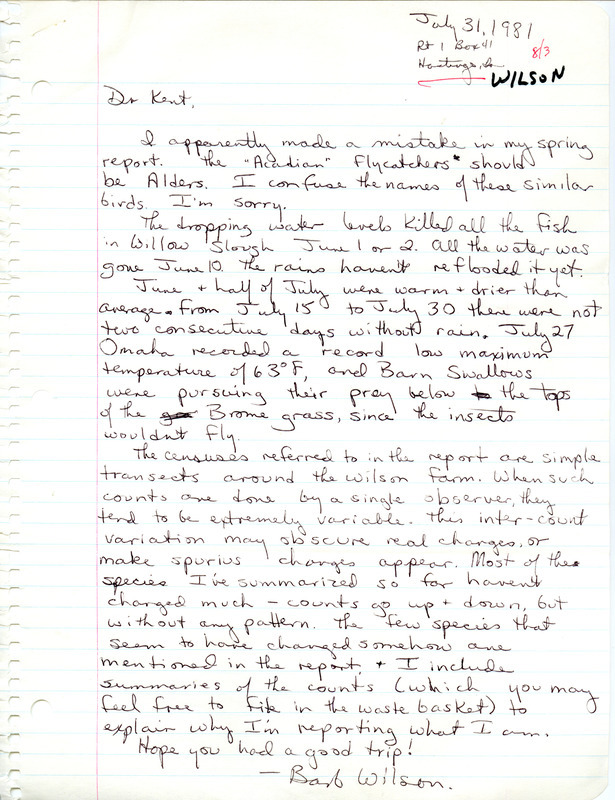 July 31, 1981
Rt 1 Box 41
8/3
Hastings, Ia
WILSON
Dr Kent,
I apparently made a mistake in my spring
report. The "Acadian" Flycatchers" should
be Alders. I confuse the names of these similar
birds. I'm sorry.
The dropping water levels killed all the fish
in Willow Slough June 1 or 2. All the water was
gone June 10. The rains haven't reflooded it yet.
June + half of July were warm + drier than
average. From July 15 to July 30 there were not
two consecutive days without rain. July 27
Omaha recorded a record low maximum
temperature of 63°F, and Barn Swallows
were pursuing their prey below the tops
of the Brome grass, since the insects
wouldn't fly.
The censuses referred to in the report are simple
transects around the Wilson farm. When such
counts are done by a single observer, they
tend to be extremely variable. This inter-count
variation may obscure real changes, or
make spurius changes appear. Most of the
species I've summarized so far haven't
changed much - counts go up + down, but
without any pattern. The few species that
seem to have changed somehow are
mentioned in the report, + I include
summaries of the counts (which you may
feel free to file in the waste basket) to
explain why I'm reporting what I am.
Hope you had a good trip!
- Barb Wilson.